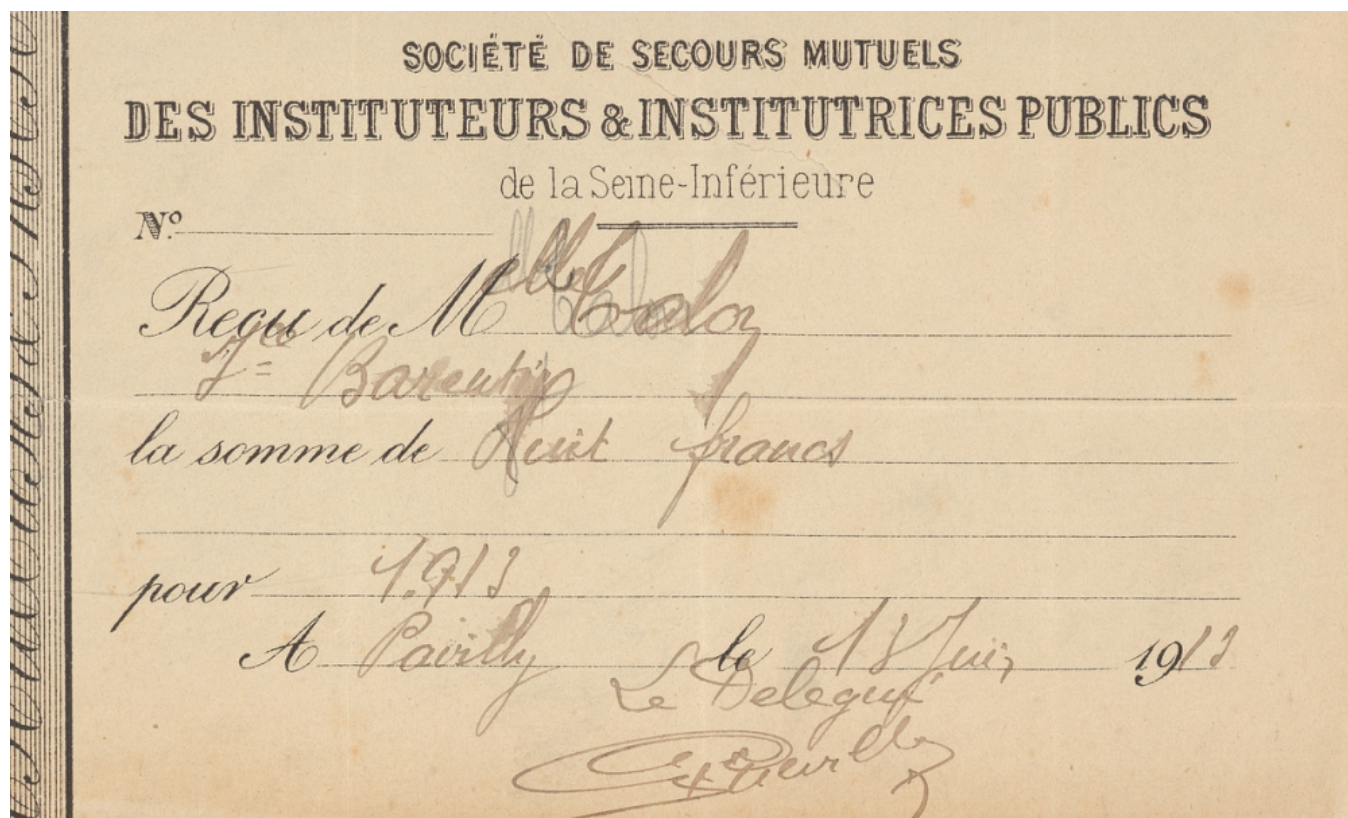 SOCIÉTÉ DE SECOURS MUTUELS
DES INSTITUTEURS & INSTITUTRICES PUBLICS
de la Seine-Inférieure
N.º
Reçu de Melle
Barentin
la somme de Huit francs
pour 1913
A Pavilly le 13 Juin 1913
Le Délégué